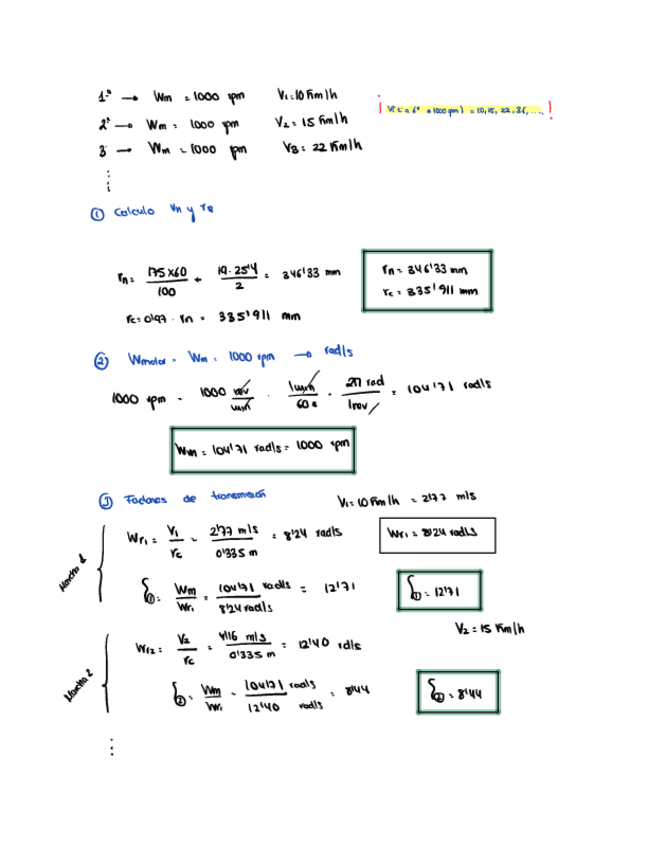 1ª → Wm = 1000 rpm V1=10 Km/h
2ª → Wm = 1000 rpm V2 = 15 Km/h
3 → Wm = 1000 rpm V3 = 22 Km/h
⋮
¡ = 10, 15, 22, 36, .... !
① Calculo rn y re
rn = 175x60/100 + 19·25'4/2 = 346'33 mm
rn = 346'33 mm
rc = 335'911 mm
rc = 0'97 · rn = 335'911 mm
② Wmotor = Wm = 1000 rpm → rad/s
1000 rpm = 1000 rev/min · 1 min/60 s · 2π rad/1 rev = 104'71 rad/s
Wm = 104'71 rad/s = 1000 rpm
③ Factores de transmisión V1 = 10 Km/h = 2'77 m/s
Marcha 1
Wr1 = V1/rc = 2'77 m/s / 0'335 m = 8'24 rad/s
Wr1 = 8'24 rad/s
ξ① = Wm/Wr1 = 104'71 rad/s / 8'24 rad/s = 12'71
ξ① = 12'71
V2 = 15 Km/h
Marcha 2
Wr2 = V2/rc = 4'16 m/s / 0'335 m = 12'40 rd/s
ξ② = Wm/Wr1 = 104'71 rad/s / 12'40 rad/s = 8'44
ξ② = 8'44
⋮